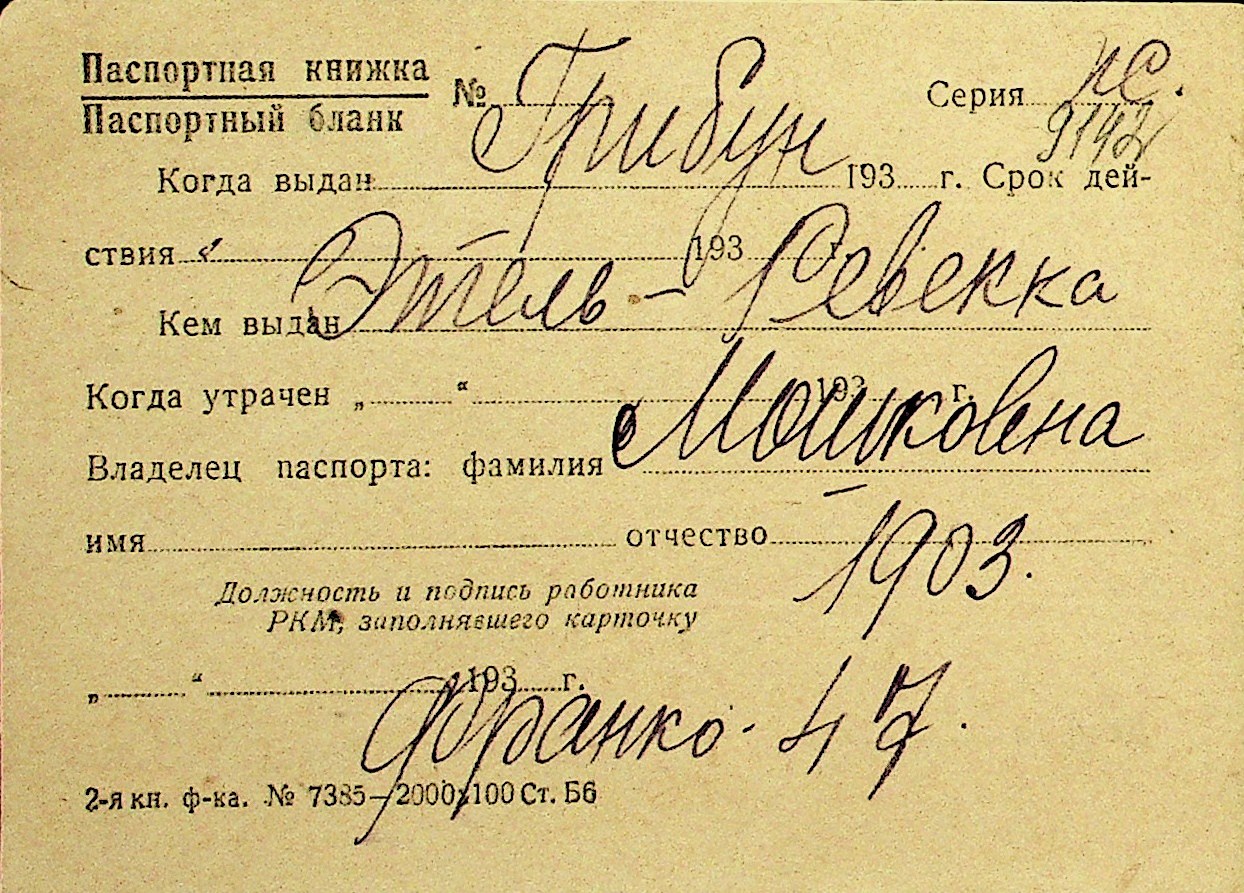 Паспортная книжка
Паспортный бланк
№ Грибун Серия ПС.
9142
Когда выдан 193 г. Срок дей-
ствия „ 193 г.
Этель - Ревекка
Кем выдан
Когда утрачен „ “ 193 г.
Мошковна
Владелец паспорта: фамилия
имя отчество
1903.
Должность и подпись работника
РКМ, заполнявшего карточку
„ “ 193 г.
Франко - 47.
2-я кн. ф-ка. № 7385—2000х100 Ст. Б6